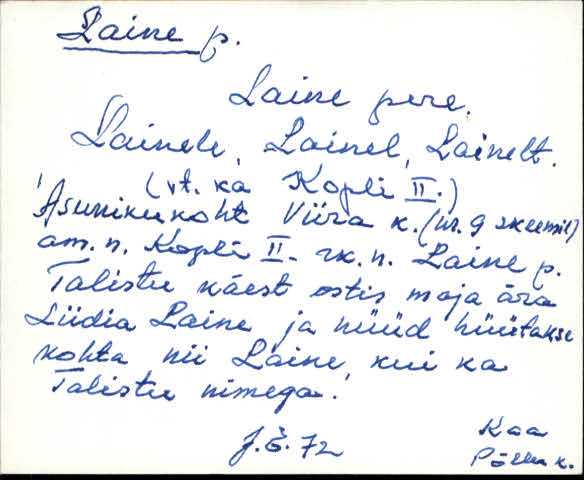 Laine p.
Laine pere.
Lainele, Lainel, Lainelt.
(vt. ka Kopli II.)
Asunikukoht Viira k. (nr. 9 skeemil)
am. n. Kopli II - rk. n. Laine p.
Talistu käest ostis maja ära
Liidia Laine ja nüüd hüütakse
kohta nii Laine, kui ka
Talistu nimega.
J. Š. 72
Kaa
Põllu k.